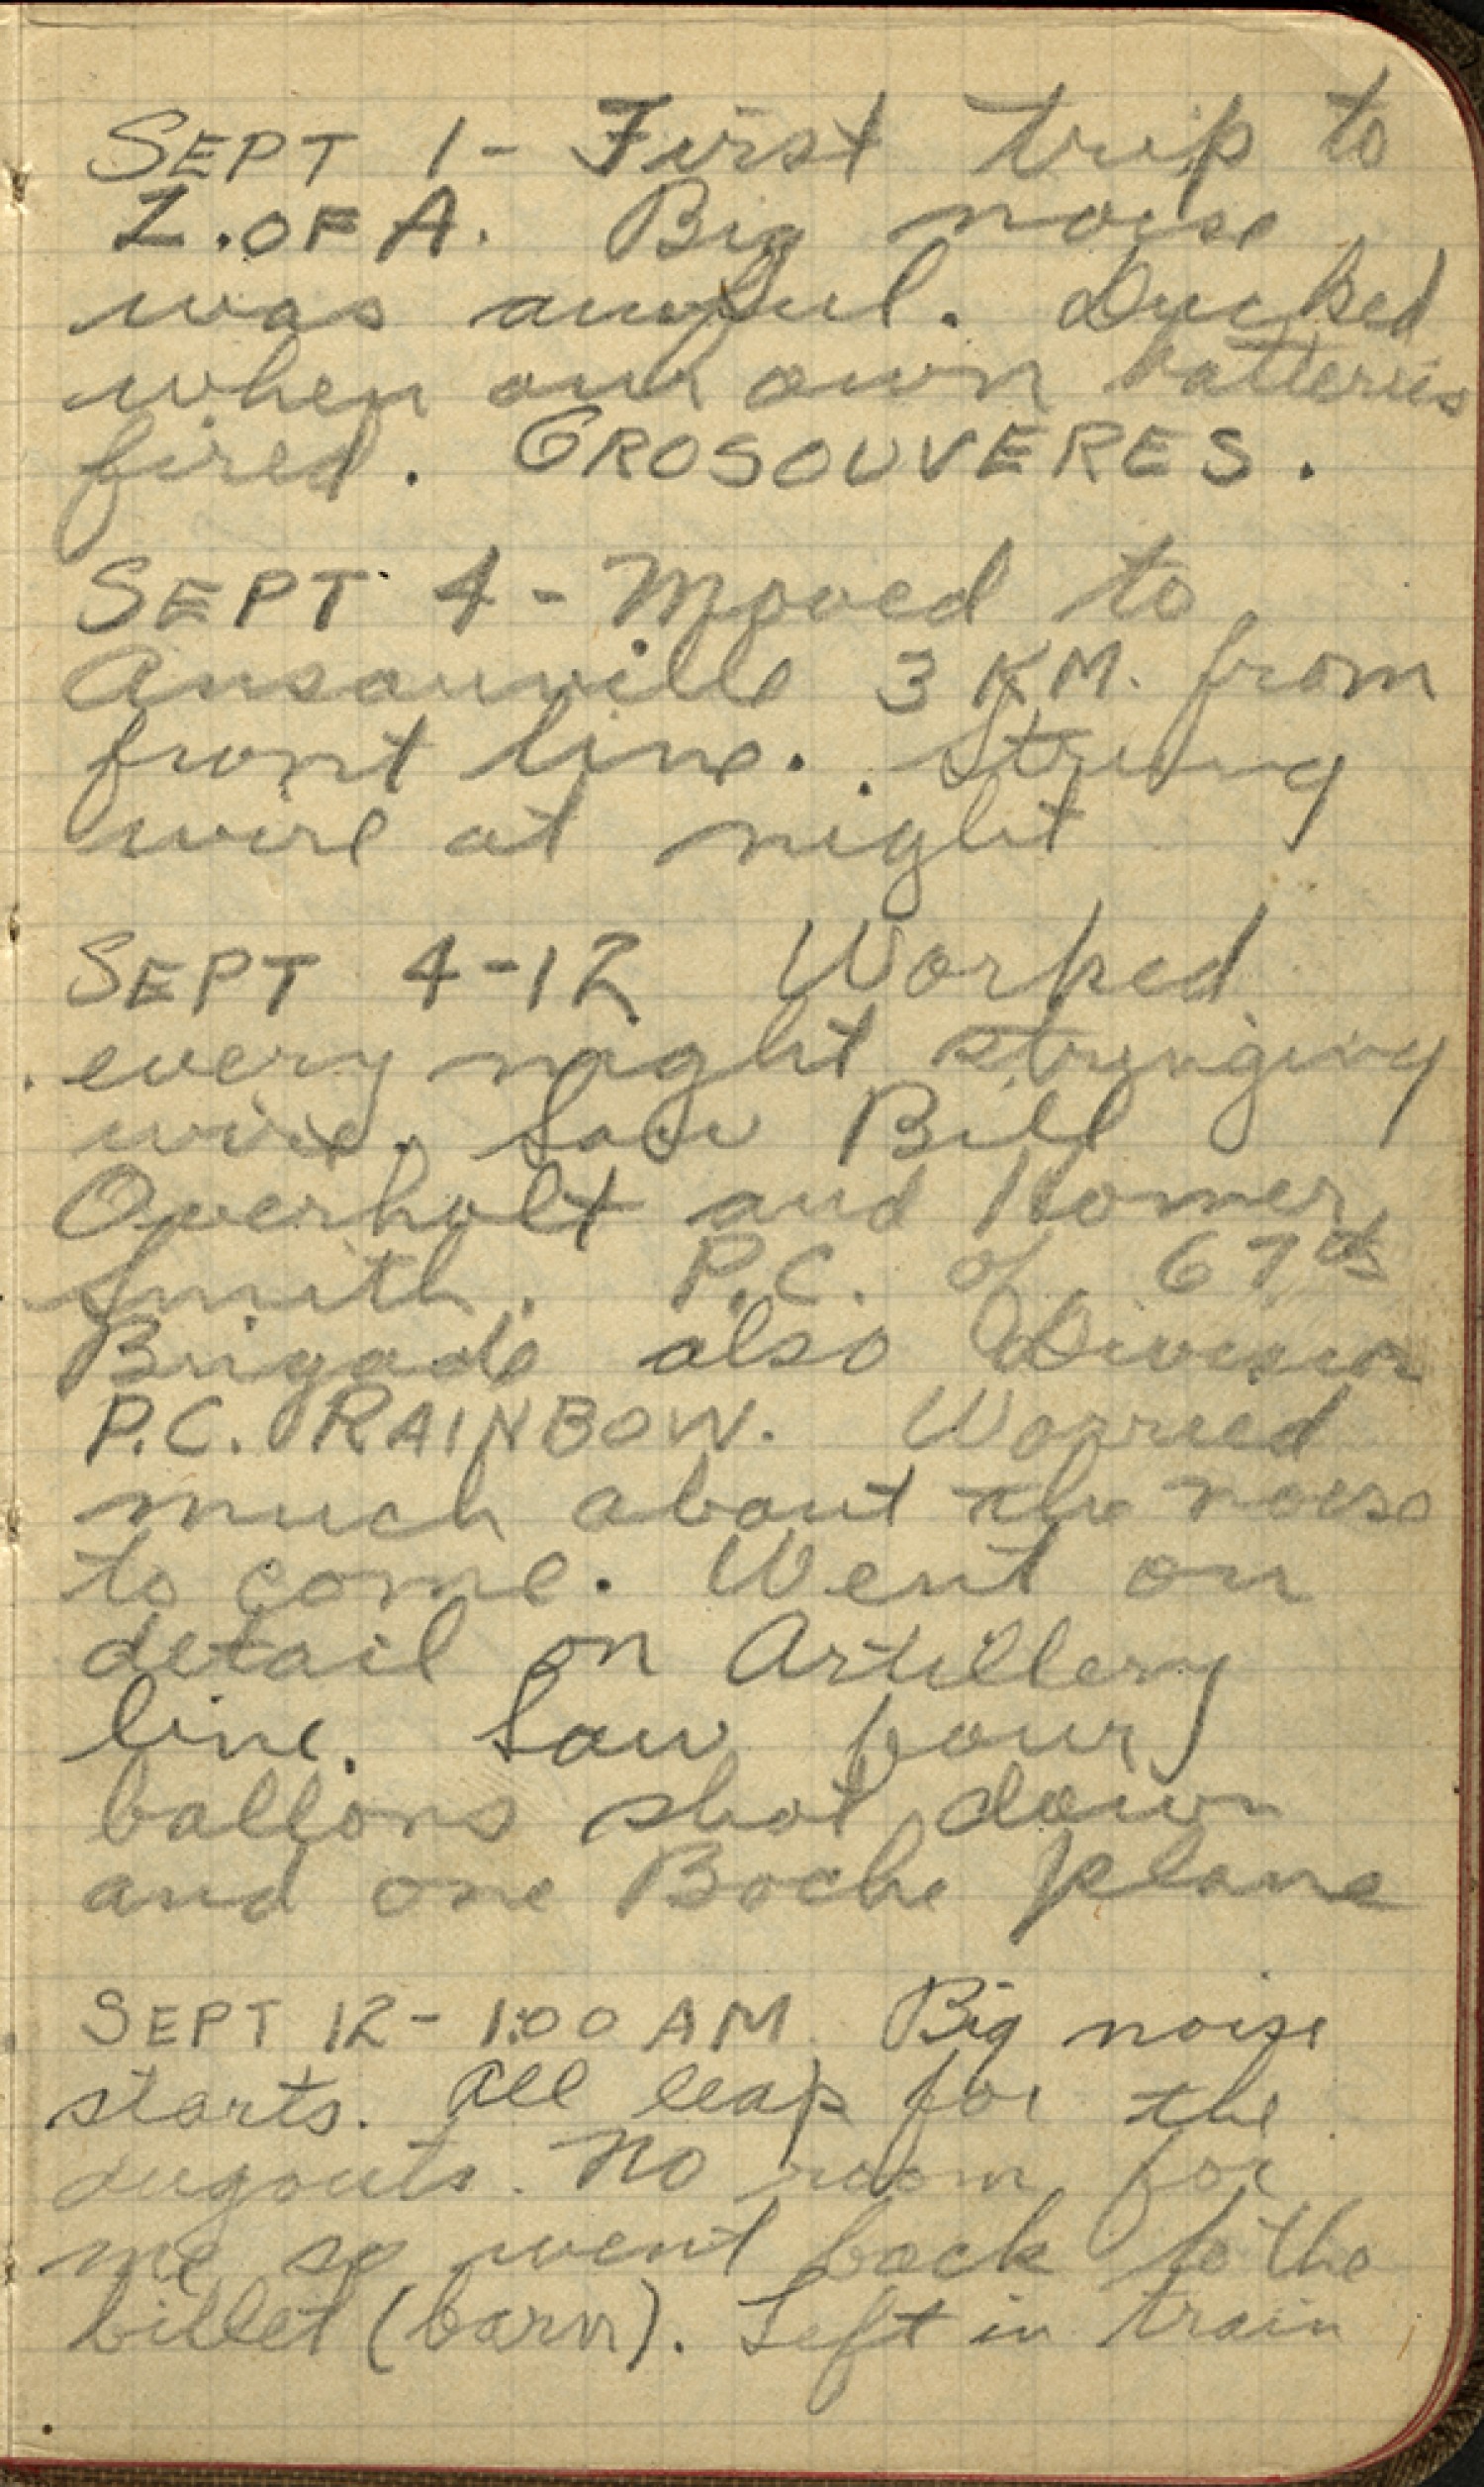 SEPT 1 - First trip to
Z. OF A. Big noise
was awful. Ducked
when our own batteries
fired. GROSOUVERES.
SEPT 4 - Moved to
Ansauville 3 KM. from
front line. Strung
wire at night
SEPT 4-12 Worked
every night stringing
wire. Saw Bill
Overholt and Homer
Smith. P.C. of 67th
Brigade also Division
P.C. RAINBOW. Worried
much about the noise
to come. Went on
detail on Artillery
line. Saw four
ballons shot down
and one Boche plane
SEPT 12 - 1:00 AM. Big noise
starts. All leap for the
dugouts. No room for
me so went back to the
billet (barn). Left in train